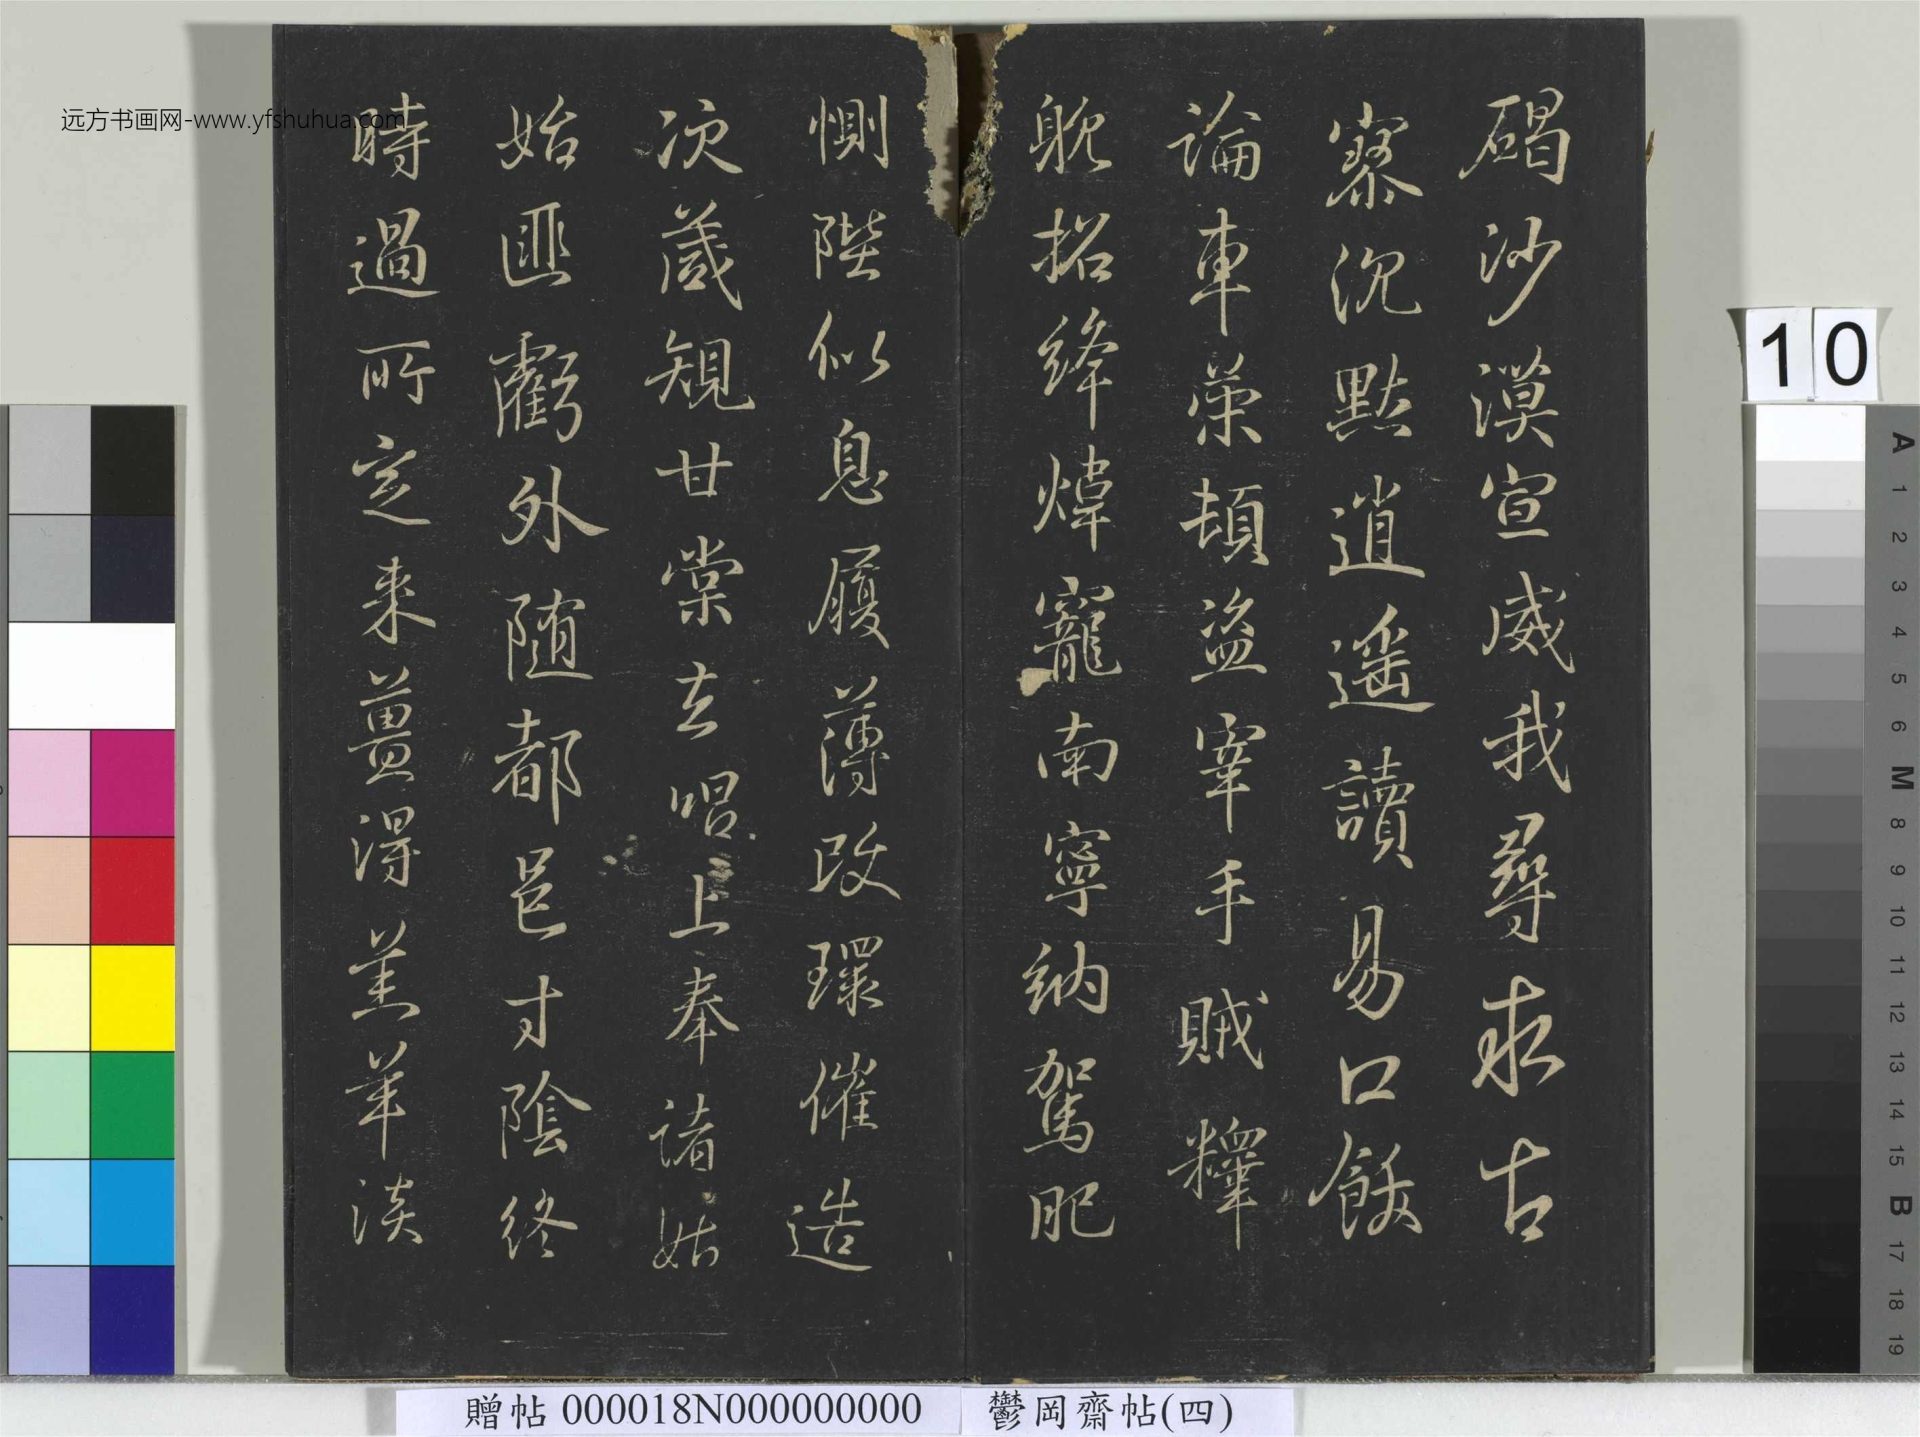 碣沙漠宣威我尋求古
寥沉默逍遥讀易口飫
論車荣頓盜宰手賊釋
躭招絳煒寵南寧納駕肥
惻陛似息履薄改環催造
次箴規甘棠去唱上奉諸姑
始匪虧外随都邑寸陰終
時過所定来薑得羔羊淡
远方书画网-www.yfshuhua.com
10
A 1 2 3 4 5 6 M 8 9 10 11 12 13 14 15 B 17 18 19
贈帖 000018N000000000 鬱岡齋帖(四)